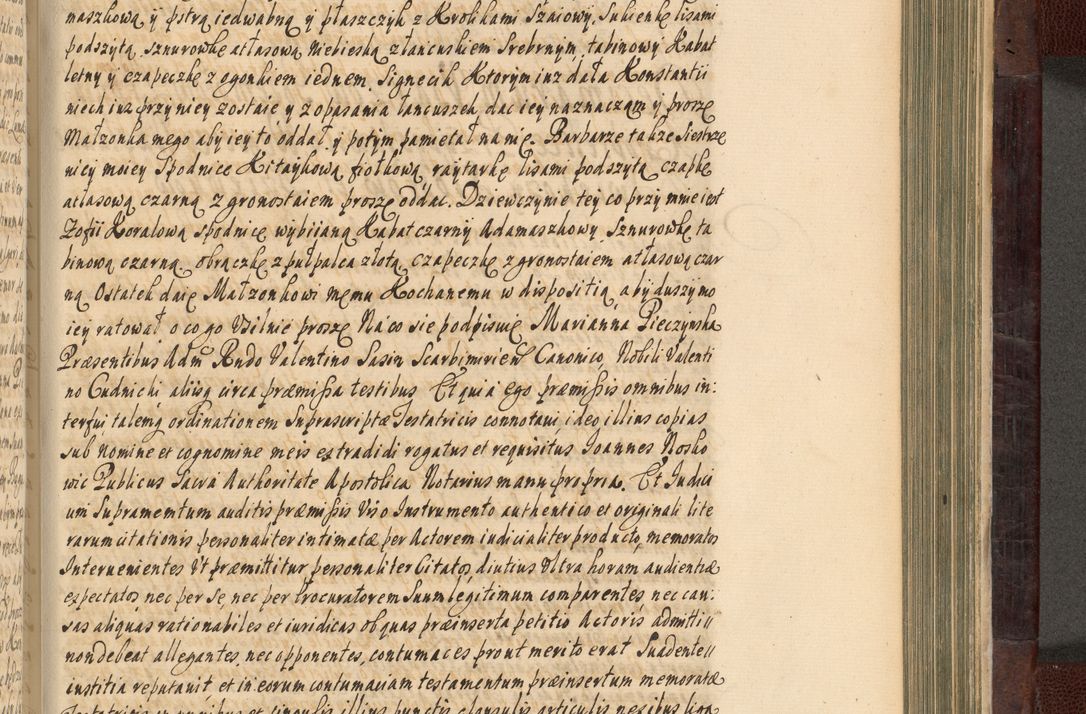 maszkową ÿ pstrą iedwabną ÿ płaszczyk z Krolikami Szaiowy, Sukienkę lisami
podszytą, sznurowkę atłasową Niebieską z łancuskiem Srebrnym, tabinowy Kabat
letny ÿ czapeczkę z ogonkiem iednem. Signecik Ktorym inz dała Konstantii
niech iuz przy niey zostaie ÿ z opasania łancuszek dac iey naznaczam ÿ proszę
Małzonka mego aby iey to oddał, ÿ potym pamietał na mię. Barbarze takze siestrze
nicy moiey Spodnice Kitaykową, fiołkową raytarkę lisami podszytą czapkę
atłasową czarną z gronostaiem proszę oddac. Dziewczynie tey co przy mnie iest
Zofii Koralową spodnicę wybiianą Kabat czarny Adamaszkowy Sznurowkę ta
binową czarną, obrączkę z pułpalca złotą, czapeczkę z gronostaiem atłasową czar
ną. Ostatek daię Małzonkowi memu Kochanemu w dispositią, abÿ duszy mo
iey ratował o co go Usilnie proszę Na co się podpisuię Marianna Pieczynska
Præsentibus Adm Rndo Valentino Sasin Scarbimirien Canonico, Nobili Valenti
no Cudnicki aliisq circa præmissa testibus Et quia ego præmissis omnibus in:
terfui talemq ordinationem Suprascriptæ Testatricis connotaui, ideo illius copias
sub nomine et cognomine meis extradidi rogatus et requisitus Joannes Nosko
wic Publicus Sacra Authoritate Apostolica Notarius manu propria. Et Judici
um Supramemtum auditis præmissis Viso Instrumento authentico et originali lite
rarum citationis personaliter intimatæ per Actorem iudicialiter producto, memoratos
Interuenientes Ut præmittitur personaliter Citatos, diutius Ultra horam audientiæ
expectatos, nec per Se, nec per Procuratorem Suum legitimum comparentes nec cau:
sas aliquas rationabiles et iuridicas ob quas præinserta petitio Actoris admitti
non debeat allegantes, nec opponentes, contumaces prout merito erat Suadente
iustitia reputauit et in eorum contumaciam testamentum præinsertum memoratæ
Testatricis in omnibus et singulis illius punctis clausulis articulis nexibus liga